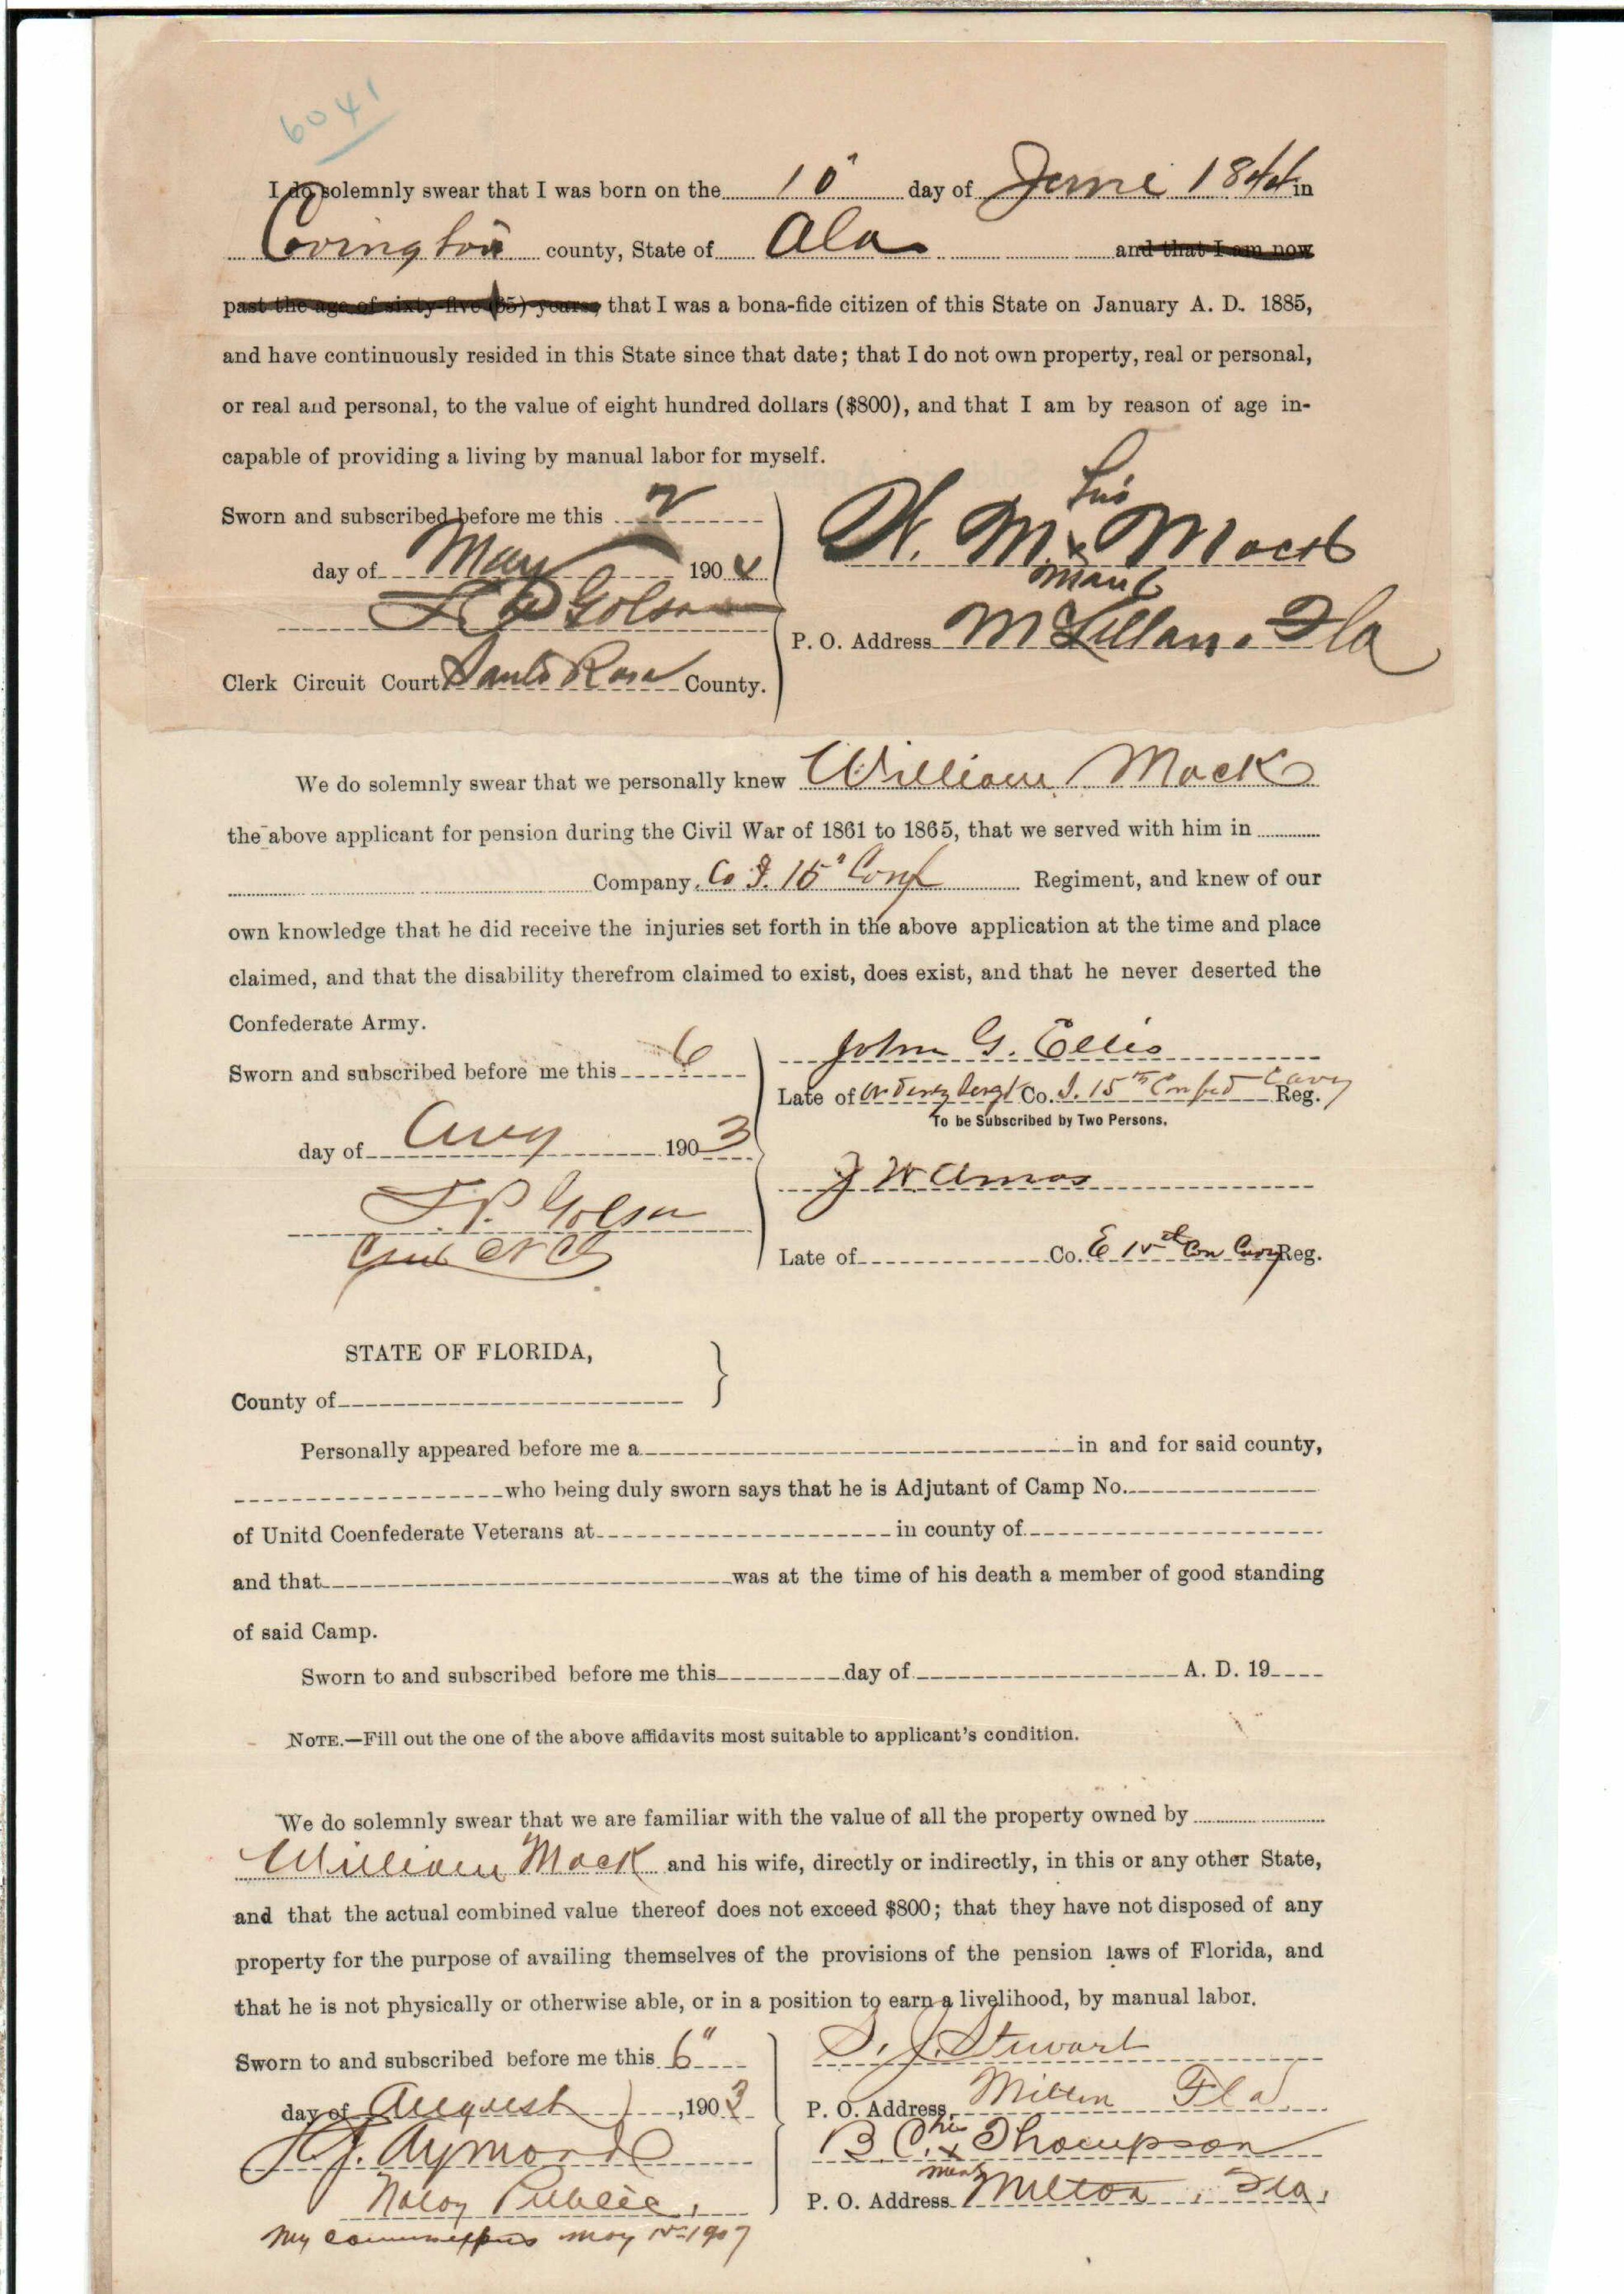 6041
I do solemnly swear that I was born on the 10" day of June 1844 in
Covington county, State of Ala and that I am now
past the age of sixty-five (65) years, that I was a bona-fide citizen of this State on January A. D. 1885,
and have continuously resided in this State since that date; that I do not own property, real or personal,
or real and personal, to the value of eight hundred dollars ($800), and that I am by reason of age in-
capable of providing a living by manual labor for myself.
Sworn and subscribed before me this 2
day of May 1904
Golson
Clerk Circuit Court Santa Rosa County.
his
W. M. x Mack
mark
P. O. Address McLellan, Fla
We do solemnly swear that we personally knew William Mack
the above applicant for pension during the Civil War of 1861 to 1865, that we served with him in
Company Co I. 15" Conf Regiment, and knew of our
own knowledge that he did receive the injuries set forth in the above application at the time and place
claimed, and that the disability therefrom claimed to exist, does exist, and that he never deserted the
Confederate Army.
Sworn and subscribed before me this 6
day of Aug 1903
Golson
John G. Ellis
Late of Sergt Co. I. 15th Confed Cavy Reg.
To be Subscribed by Two Persons.
J W Amos
Late of Co. E 15th Con Cavy Reg.
STATE OF FLORIDA,
County of
Personally appeared before me a in and for said county,
who being duly sworn says that he is Adjutant of Camp No.
of Unitd Coenfederate Veterans at in county of
and that was at the time of his death a member of good standing
of said Camp.
Sworn to and subscribed before me this day of A. D. 19
NOTE.—Fill out the one of the above affidavits most suitable to applicant's condition.
We do solemnly swear that we are familiar with the value of all the property owned by
William Mack and his wife, directly or indirectly, in this or any other State,
and that the actual combined value thereof does not exceed $800; that they have not disposed of any
property for the purpose of availing themselves of the provisions of the pension laws of Florida, and
that he is not physically or otherwise able, or in a position to earn a livelihood, by manual labor.
Sworn to and subscribed before me this 6"
day of August, 1903
Aymond
Notary Public,
My commission expires May 15 1907
S. J. Stewart
P. O. Address Milton Fla.
his
B. C. x Thompson
mark
P. O. Address Milton, Fla,